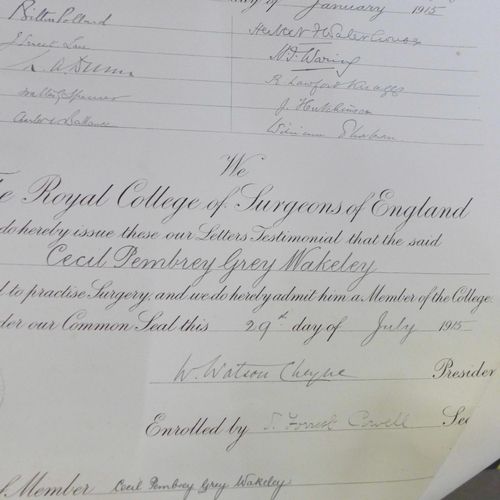 of January 1915
Bilton Pollard
Herbert F Waterhouse
J Ernest Lane
H. J. Waring
L. A. Dunn
R. Lawford Knaggs
Walter G Spencer
J Hutchinson
Charles Ballance
We
The Royal College of Surgeons of England
do hereby issue these our Letters Testimonial that the said
Cecil Pembrey Grey Wakeley
d to practise Surgery, and we do hereby admit him a Member of the College
der our Common Seal this 29th day of July 1915
W. Watson Cheyne Presiden
Enrolled by S. Forrest Cowell Sec
of Member Cecil Pembrey Grey Wakeley